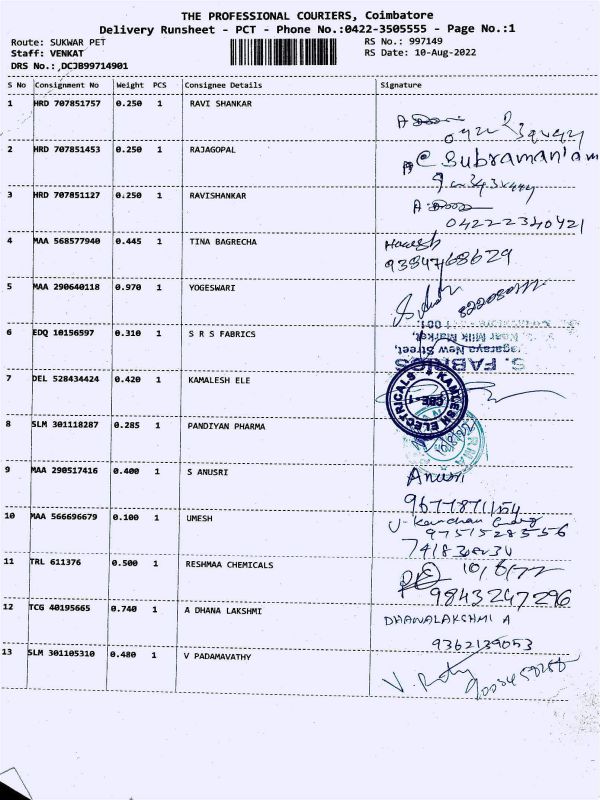 THE PROFESSIONAL COURIERS, Coimbatore
Delivery Runsheet - PCT - Phone No.:0422-3505555 - Page No.:1
Route: SUKWAR PET
RS No.: 997149
Staff: VENKAT
RS Date: 10-Aug-2022
DRS No.:,DCJB99714901
S No Consignment No Weight PCS Consignee Details Signature
1 HRD 707851757 0.250 1 RAVI SHANKAR
2 HRD 707851453 0.250 1 RAJAGOPAL
C Subramaniam
3 HRD 707851127 0.250 1 RAVISHANKAR
04222340421
4 MAA 568577940 0.445 1 TINA BAGRECHA
9384768629
5 MAA 290640118 0.970 1 YOGESWARI
6 EDQ 10156597 0.310 1 S R S FABRICS
Milk Market,
New Street,
S. FABRICS
7 DEL 528434424 0.420 1 KAMALESH ELE
KAMLESH ELECTRICALS
CBE-1
8 SLM 301118287 0.285 1 PANDIYAN PHARMA
9 MAA 290517416 0.400 1 S ANUSRI
Anusri
9677871154
10 MAA 566696679 0.100 1 UMESH
9751528556
11 TRL 611376 0.500 1 RESHMAA CHEMICALS
9843247296
12 TCG 40195665 0.740 1 A DHANA LAKSHMI
DHANALAKSHMI A
9362139053
13 SLM 301105310 0.480 1 V PADAMAVATHY